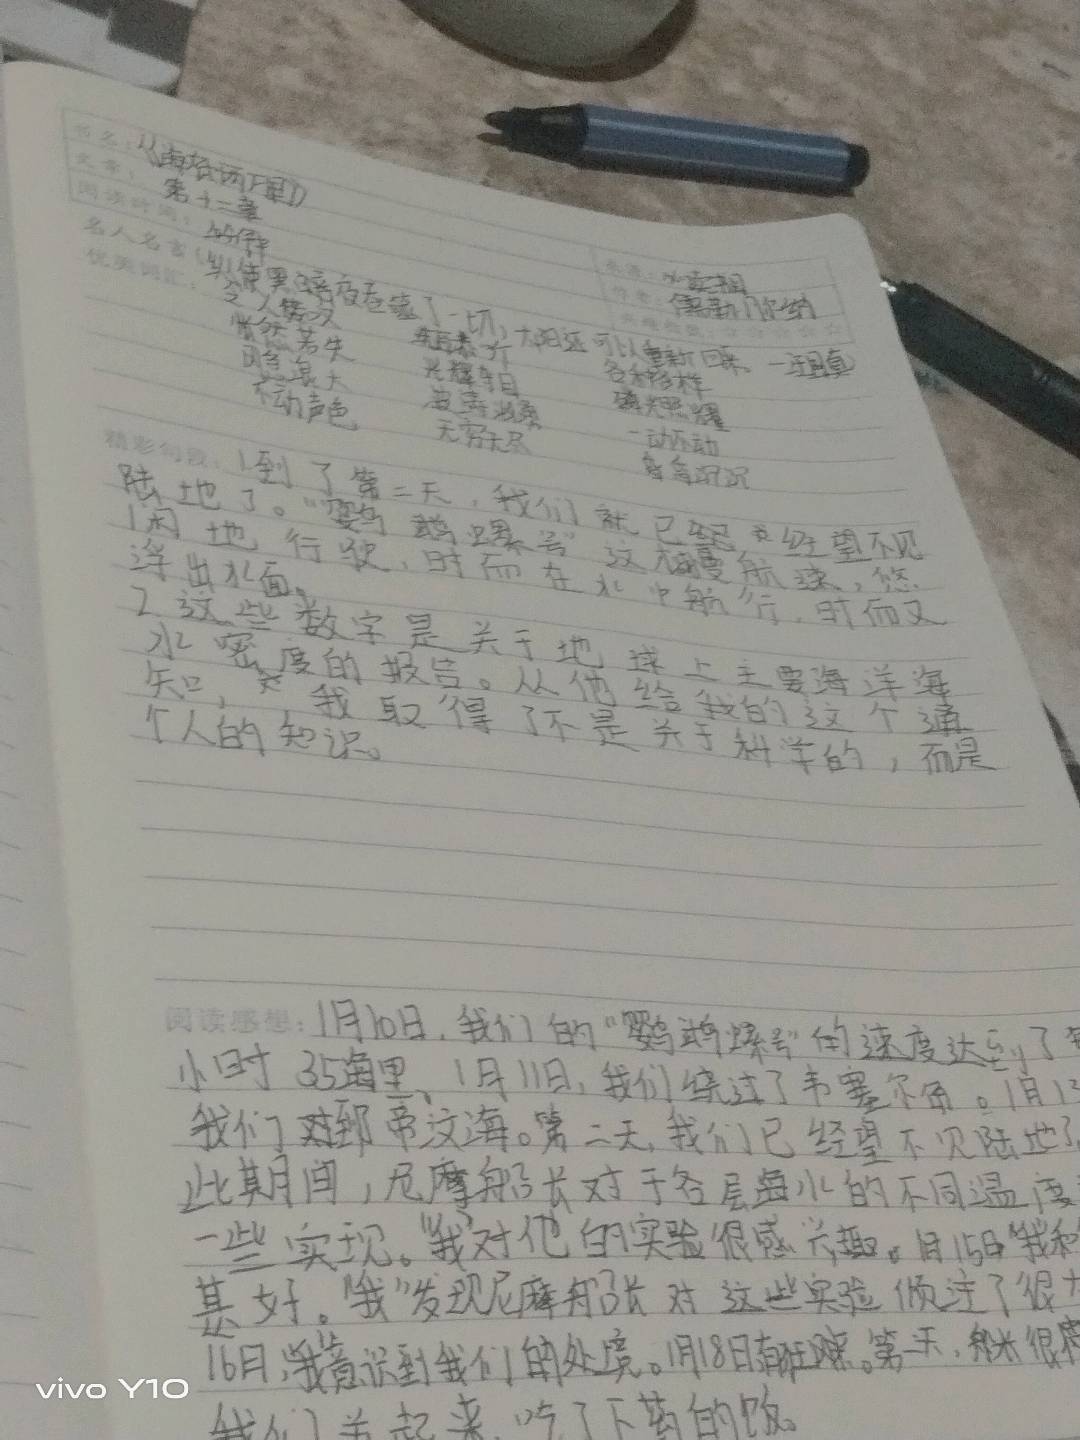 书名：《海底两万里》
文章：第十二章
阅读时间：
作者：儒勒·凡尔纳
名人名言：纵使黑暗夜卷盖了一切，太阳还可以重新回来。
优美词汇：
怅然若失
风急浪大
不动声色
光辉夺目
波涛汹涌
无穷无尽
各种各样
磷光照耀
一动不动
昏昏沉沉
精彩句段：1到了第二天，我们就已经 经望不见
陆地了。“鹦鹉螺号”放慢航速，悠
闲地行驶，时而在水中航行，时而又
浮出水面。
2 这些数字是关于地球上主要海洋海
水密度的报告。从他给我的这个通
知，我取得了不是关于科学的，而是
个人的知识。
阅读感想：1月10日，我们的“鹦鹉螺号”的速度达到了每
小时35海里，1月11日，我们绕过了韦塞尔角。1月13
我们 到 帝汶海。第二天，我们已经望不见陆地了
此期间，尼摩船长对于各层海水的不同温度
一些实现。“我”对他的实验很感兴趣。1月15日“我和
甚好。“我”发现尼摩船长对这些实验倾注了很大
16日，“我”意识到我们的处境。1月18日 第二天，
我们 起来，吃了下药的饭。
vivo Y10